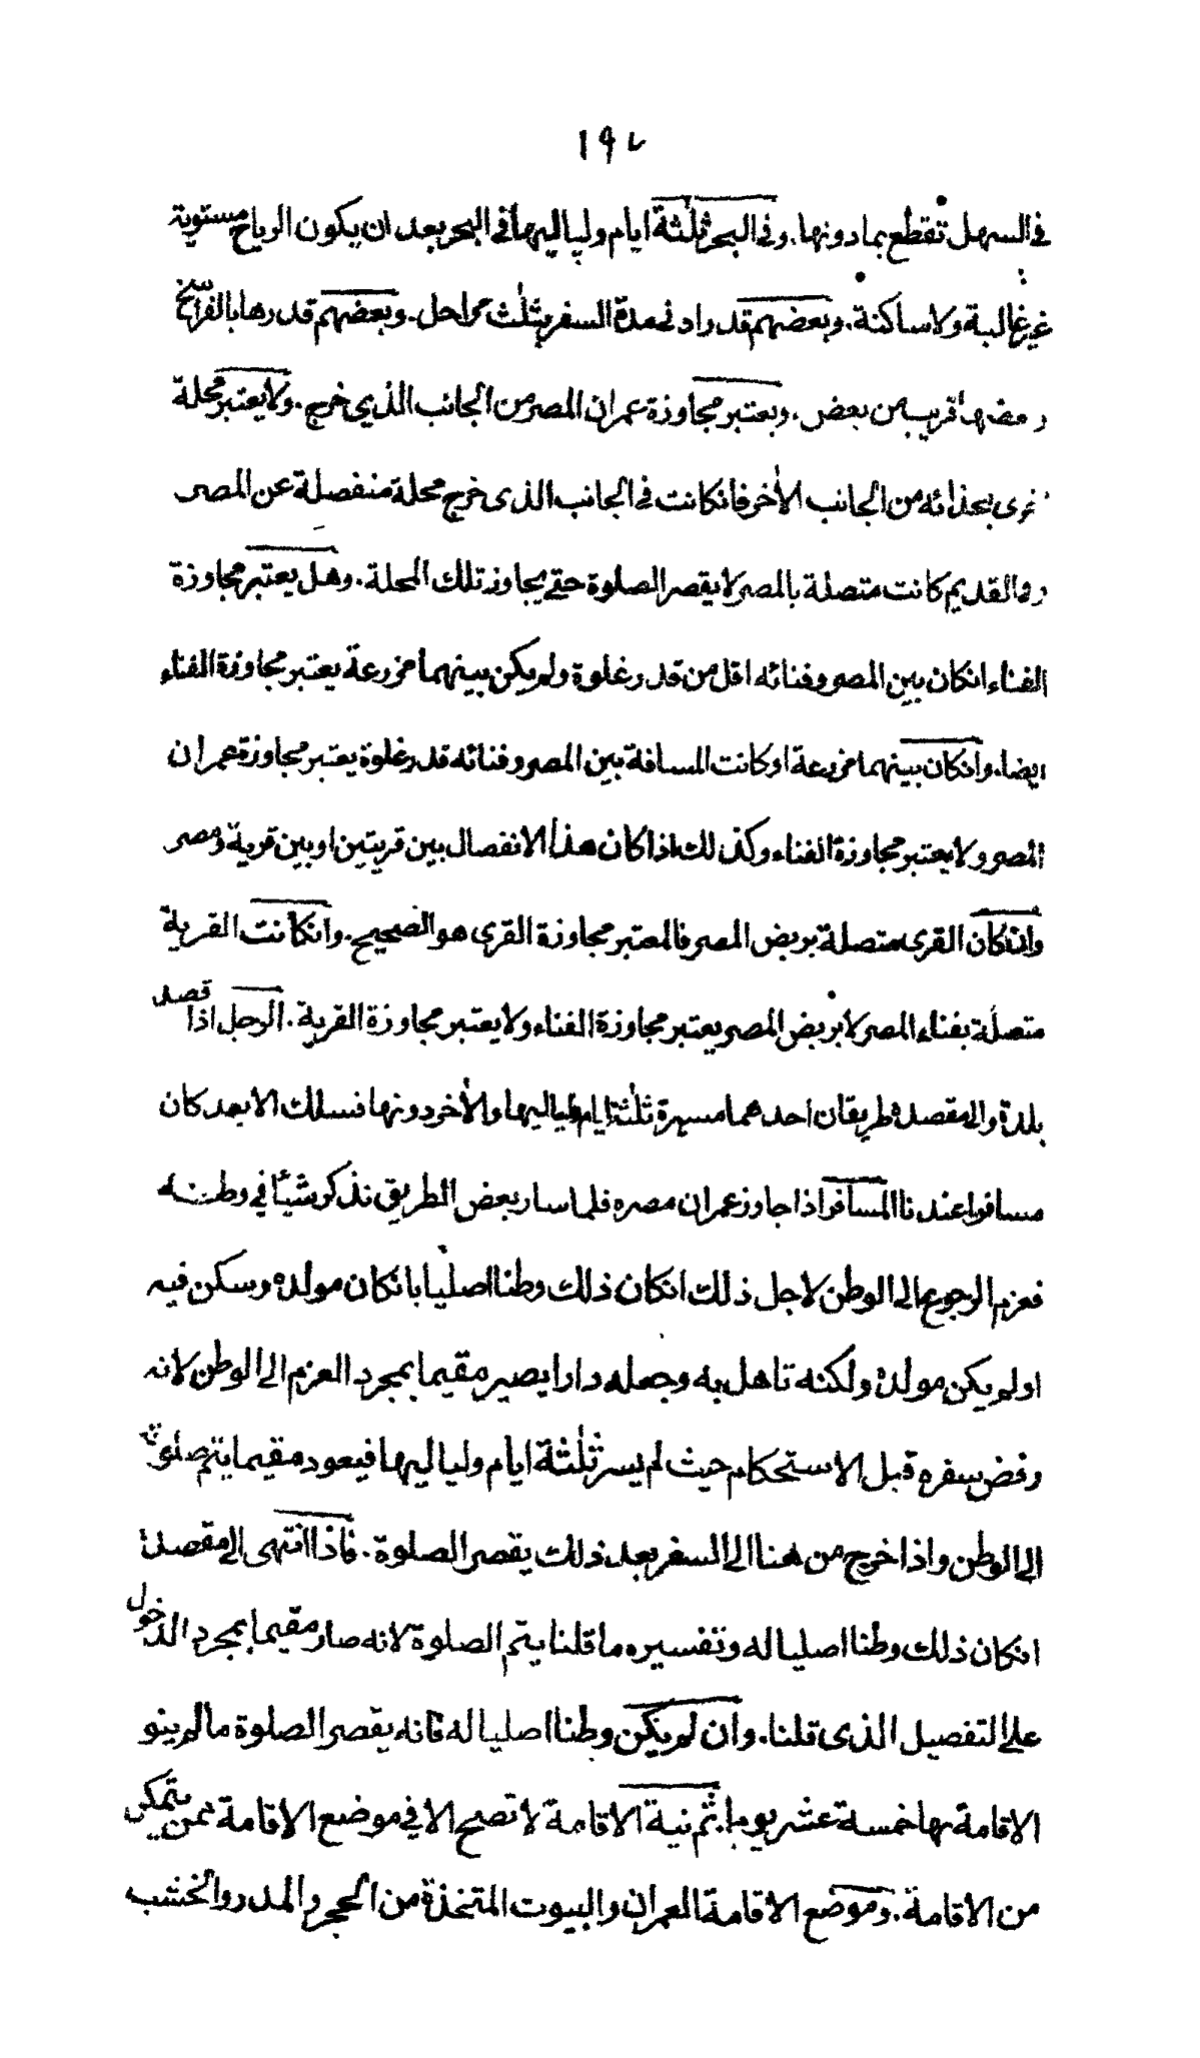 ١٩٧
في السهل تقطع بما دونها. وفي البحر ثلثة ايام ولياليها في البحر بعد ان يكون الرياح مستوية
غير غالبة ولا ساكنة. وبعضهم قدر ادنى مدة السفر بثلث مراحل. وبعضهم قدرها بالفراسخ
بعضها قريب من بعض. ويعتبر مجاوزة عمران المصر من الجانب الذي خرج. ولا يعتبر محلة
اخرى بحذائه من الجانب الأخر فانكانت في الجانب الذى خرج محلة منفصلة عن المصر
وفى القديم كانت متصلة بالمصر لا يقصر الصلوة حتى يجاوز تلك المحلة. وهل يعتبر مجاوزة
الفناء انكان بين المصر وفنائه اقل من قدر غلوة ولم يكن بينهما مزرعة يعتبر مجاوزة الفناء
ايضا. وانكان بينهما مزرعة او كانت المسافة بين المصر وفنائه قدر غلوة يعتبر مجاوزة عمران
المصر ولا يعتبر مجاوزة الفناء وكذلك اذا كان هذا الانفصال بين قريتين او بين قرية ومصر
وان كان القرى متصلة بربض المصر فالمعتبر مجاوزة القرى هو الصحيح. وانكانت القرية
متصلة بفناء المصر لا بربض المصر يعتبر مجاوزة الفناء ولا يعتبر مجاوزة القرية. الرجل اذا قصد
بلدة والى مقصده طريقان احدهما مسيرة ثلثة ايام ولياليها والأخر دونها فسلك الابعد كان
مسافرا عندنا المسافر اذا جاوز عمران مصره فلما سار بعض الطريق تذكر شيئا في وطنه
فعزم الرجوع الى الوطن لاجل ذلك انكان ذلك وطنا اصليا بانكان مولده وسكن فيه
او لم يكن مولده ولكنه تاهل به وجعله دارا يصير مقيما بمجرد العزم الى الوطن لانه
رفض سفره قبل الاستحكام حيث لم يسر ثلثة ايام ولياليها فيعود مقيما يتم صلوته
الى الوطن واذا خرج من هنا الى السفر بعد ذلك يقصر الصلوة. فاذا انتهى الى مقصده
انكان ذلك وطنا اصليا له وتفسيره ما قلنا يتم الصلوة لانه صار مقيما بمجرد الدخول
على التفصيل الذى قلنا. وان لم يكن وطنا اصليا له فانه يقصر الصلوة ما لم ينو
الاقامة بها خمسة عشر يوما. ثم نية الاقامة لا تصح الا في موضع الاقامة ممن يتمكن
من الاقامة. وموضع الاقامة العمران والبيوت المتخذة من الحجر والمدر والخشب